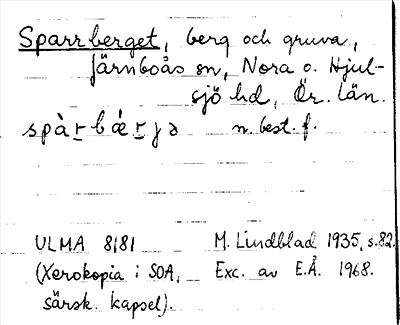 Sparrberget, berg och gruva,
Järnboås sn, Nora o. Hjul-
sjö hd, Ör. län.
spàr̲bǽr̲jə n. best. f.
ULMA 8181 M. Lindblad 1935, s. 82.
(Xerokopia i SOA, Exc. av E.Å. 1968.
särsk. kapsel).